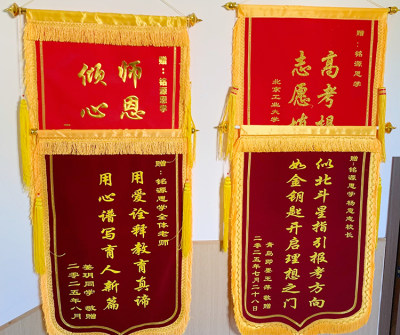 赠：铭源思学
师恩
倾心
赠：铭源思学全体老师
用爱诠释教育真谛
用心谱写育人新篇
玥同学 敬赠
二零二五年八月
赠：铭源思学
高考
志愿
北京工业大学
赠：铭源思学杨校长
似北斗星指引报考方向
如金钥匙开启理想之门
青岛即墨 敬赠
二零二五年七月二十八日